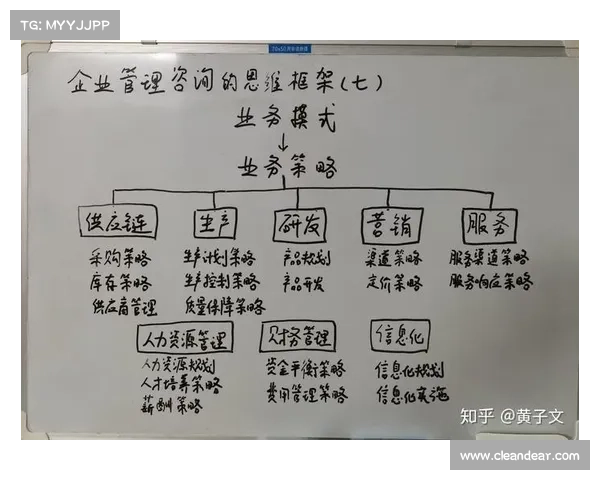 TG: MYYJJPP
企业管理咨询的思维框架(七)
业务模式
↓
业务策略
供应链 生产 研发 营销 服务
采购策略 生产计划策略 产品规划 渠道策略 服务渠道策略
库存策略 生产控制策略 产品开发 定价策略 服务响应策略
供应商管理 质量保障策略
人力资源管理 财务管理 信息化
人力资源规划 资金平衡策略 信息化规划
人才培养策略 费用管理策略 信息化实施
薪酬策略
知乎 @黄子文
www.cleandear.com